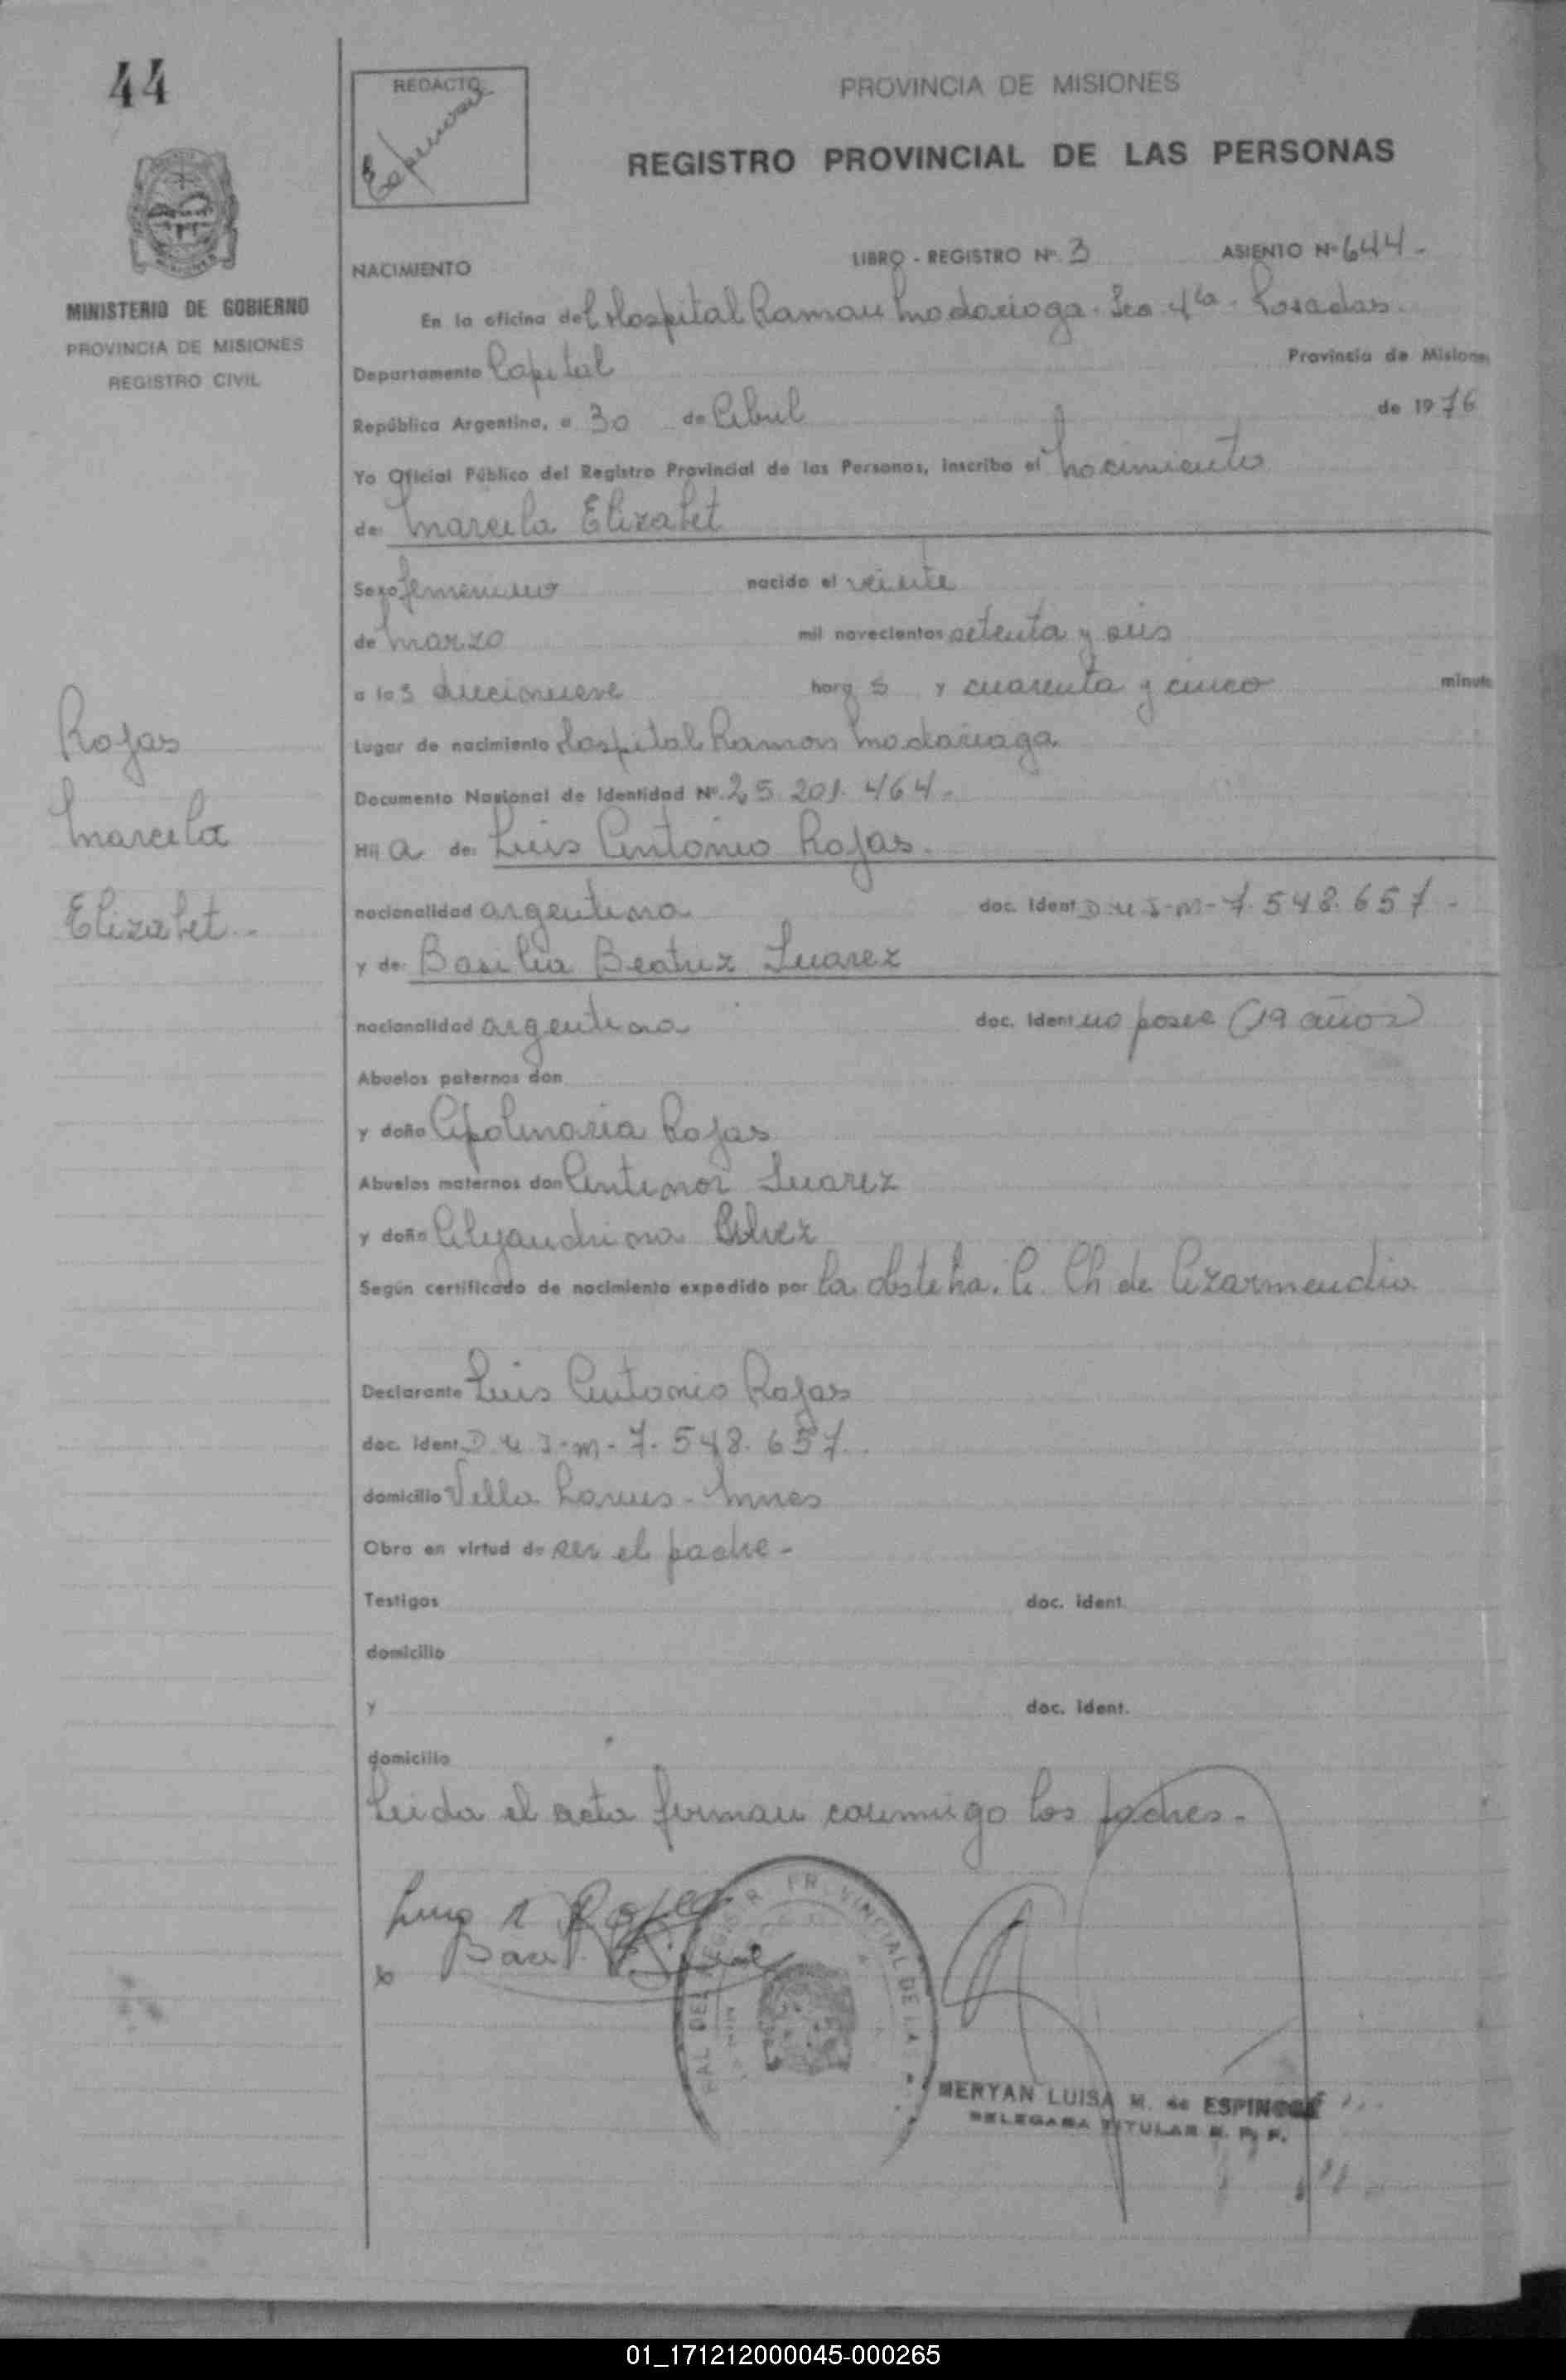 44
REDACTO
Espinosa
PROVINCIA DE MISIONES
REGISTRO PROVINCIAL DE LAS PERSONAS
MINISTERIO DE GOBIERNO
PROVINCIA DE MISIONES
REGISTRO CIVIL
NACIMIENTO
LIBRO - REGISTRO Nº 3 ASIENTO Nº 644-
En la oficina del Hospital Ramon Madariaga. Sec 4ta. Posadas.
Departamento Capital Provincia de Misiones
República Argentina, a 30 de Abril de 1976
Yo Oficial Público del Registro Provincial de las Personas, inscribo el nacimiento
de: Marcela Elizabet
Sexo femenino nacido el veinte
de marzo mil novecientos setenta y seis
a las diecinueve horas y cuarenta y cinco minuto
Rojas
Marcela
Elizabet.-
Lugar de nacimiento Hospital Ramon Madariaga
Documento Nacional de Identidad Nº. 25.201.464-
Hij a de: Luis Antonio Rojas.
nacionalidad argentina doc. Ident D.N.I-M-7.548.657-
y de: Basilia Beatriz Suarez
nacionalidad argentina doc. Ident no posee (19 años)
Abuelos paternos don
y doña Apolinaria Rojas
Abuelos maternos don Antenor Suarez
y doña Alejandrina
Según certificado de nacimiento expedido por la obstetra. A. Ch de Azarmendia
Declarante Luis Antonio Rojas
doc. ident. D.N.I-M-7.548.657.
domicilio Villa Lanus-Mnes
Obra en virtud de ser el padre-
Testigos doc. ident.
domicilio
y doc. ident.
domicilio
Leida el acta firman conmigo los padres-
Luis A Rojas
MERYAN LUISA M. de ESPINOSA
DELEGADA TITULAR R. P. P.
01_171212000045-000265